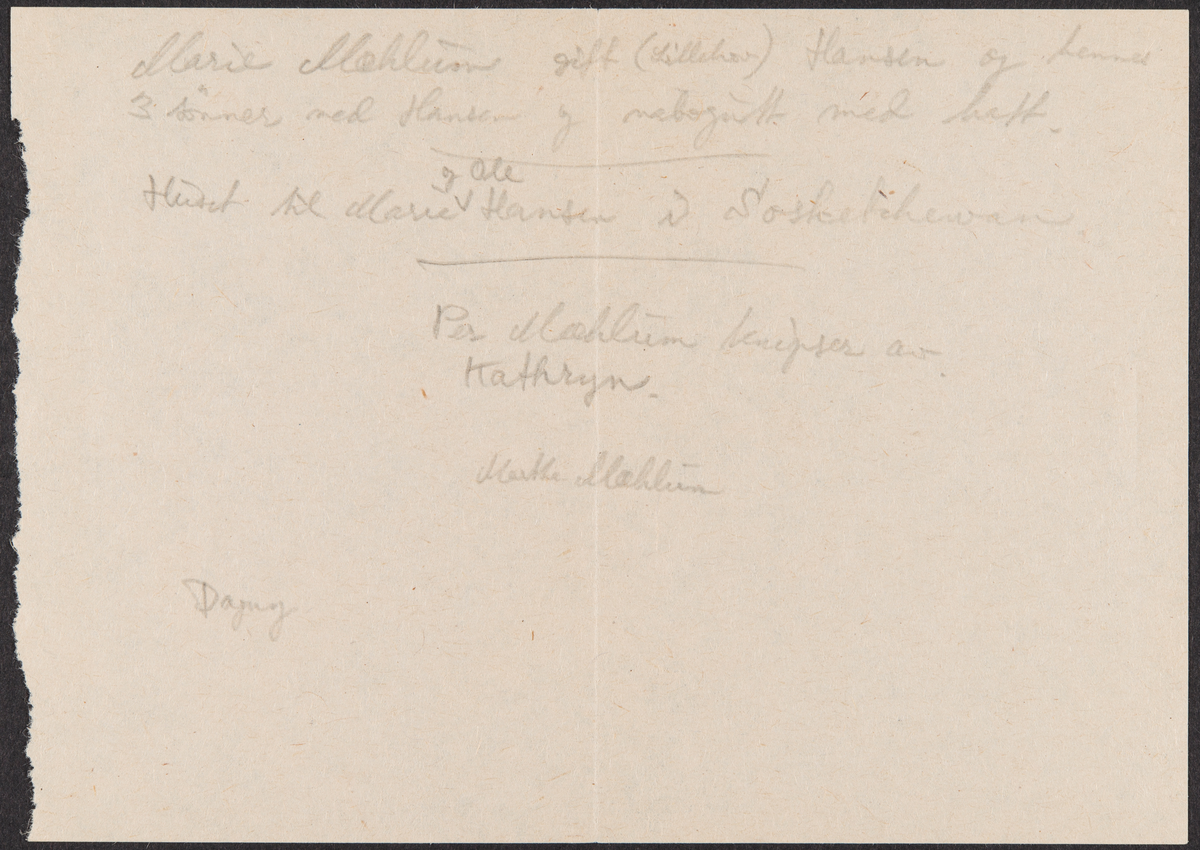 Marie Mæhlum gift (Lillehov) Hansen og hennes
3 sönner med Hansen og nabogutt med hatt.
og Ole
Huset til Marie Hansen i Sosketchewan
Per Mæhlum knipser av
Kathryn.
Marthe Mæhlum
Dagny